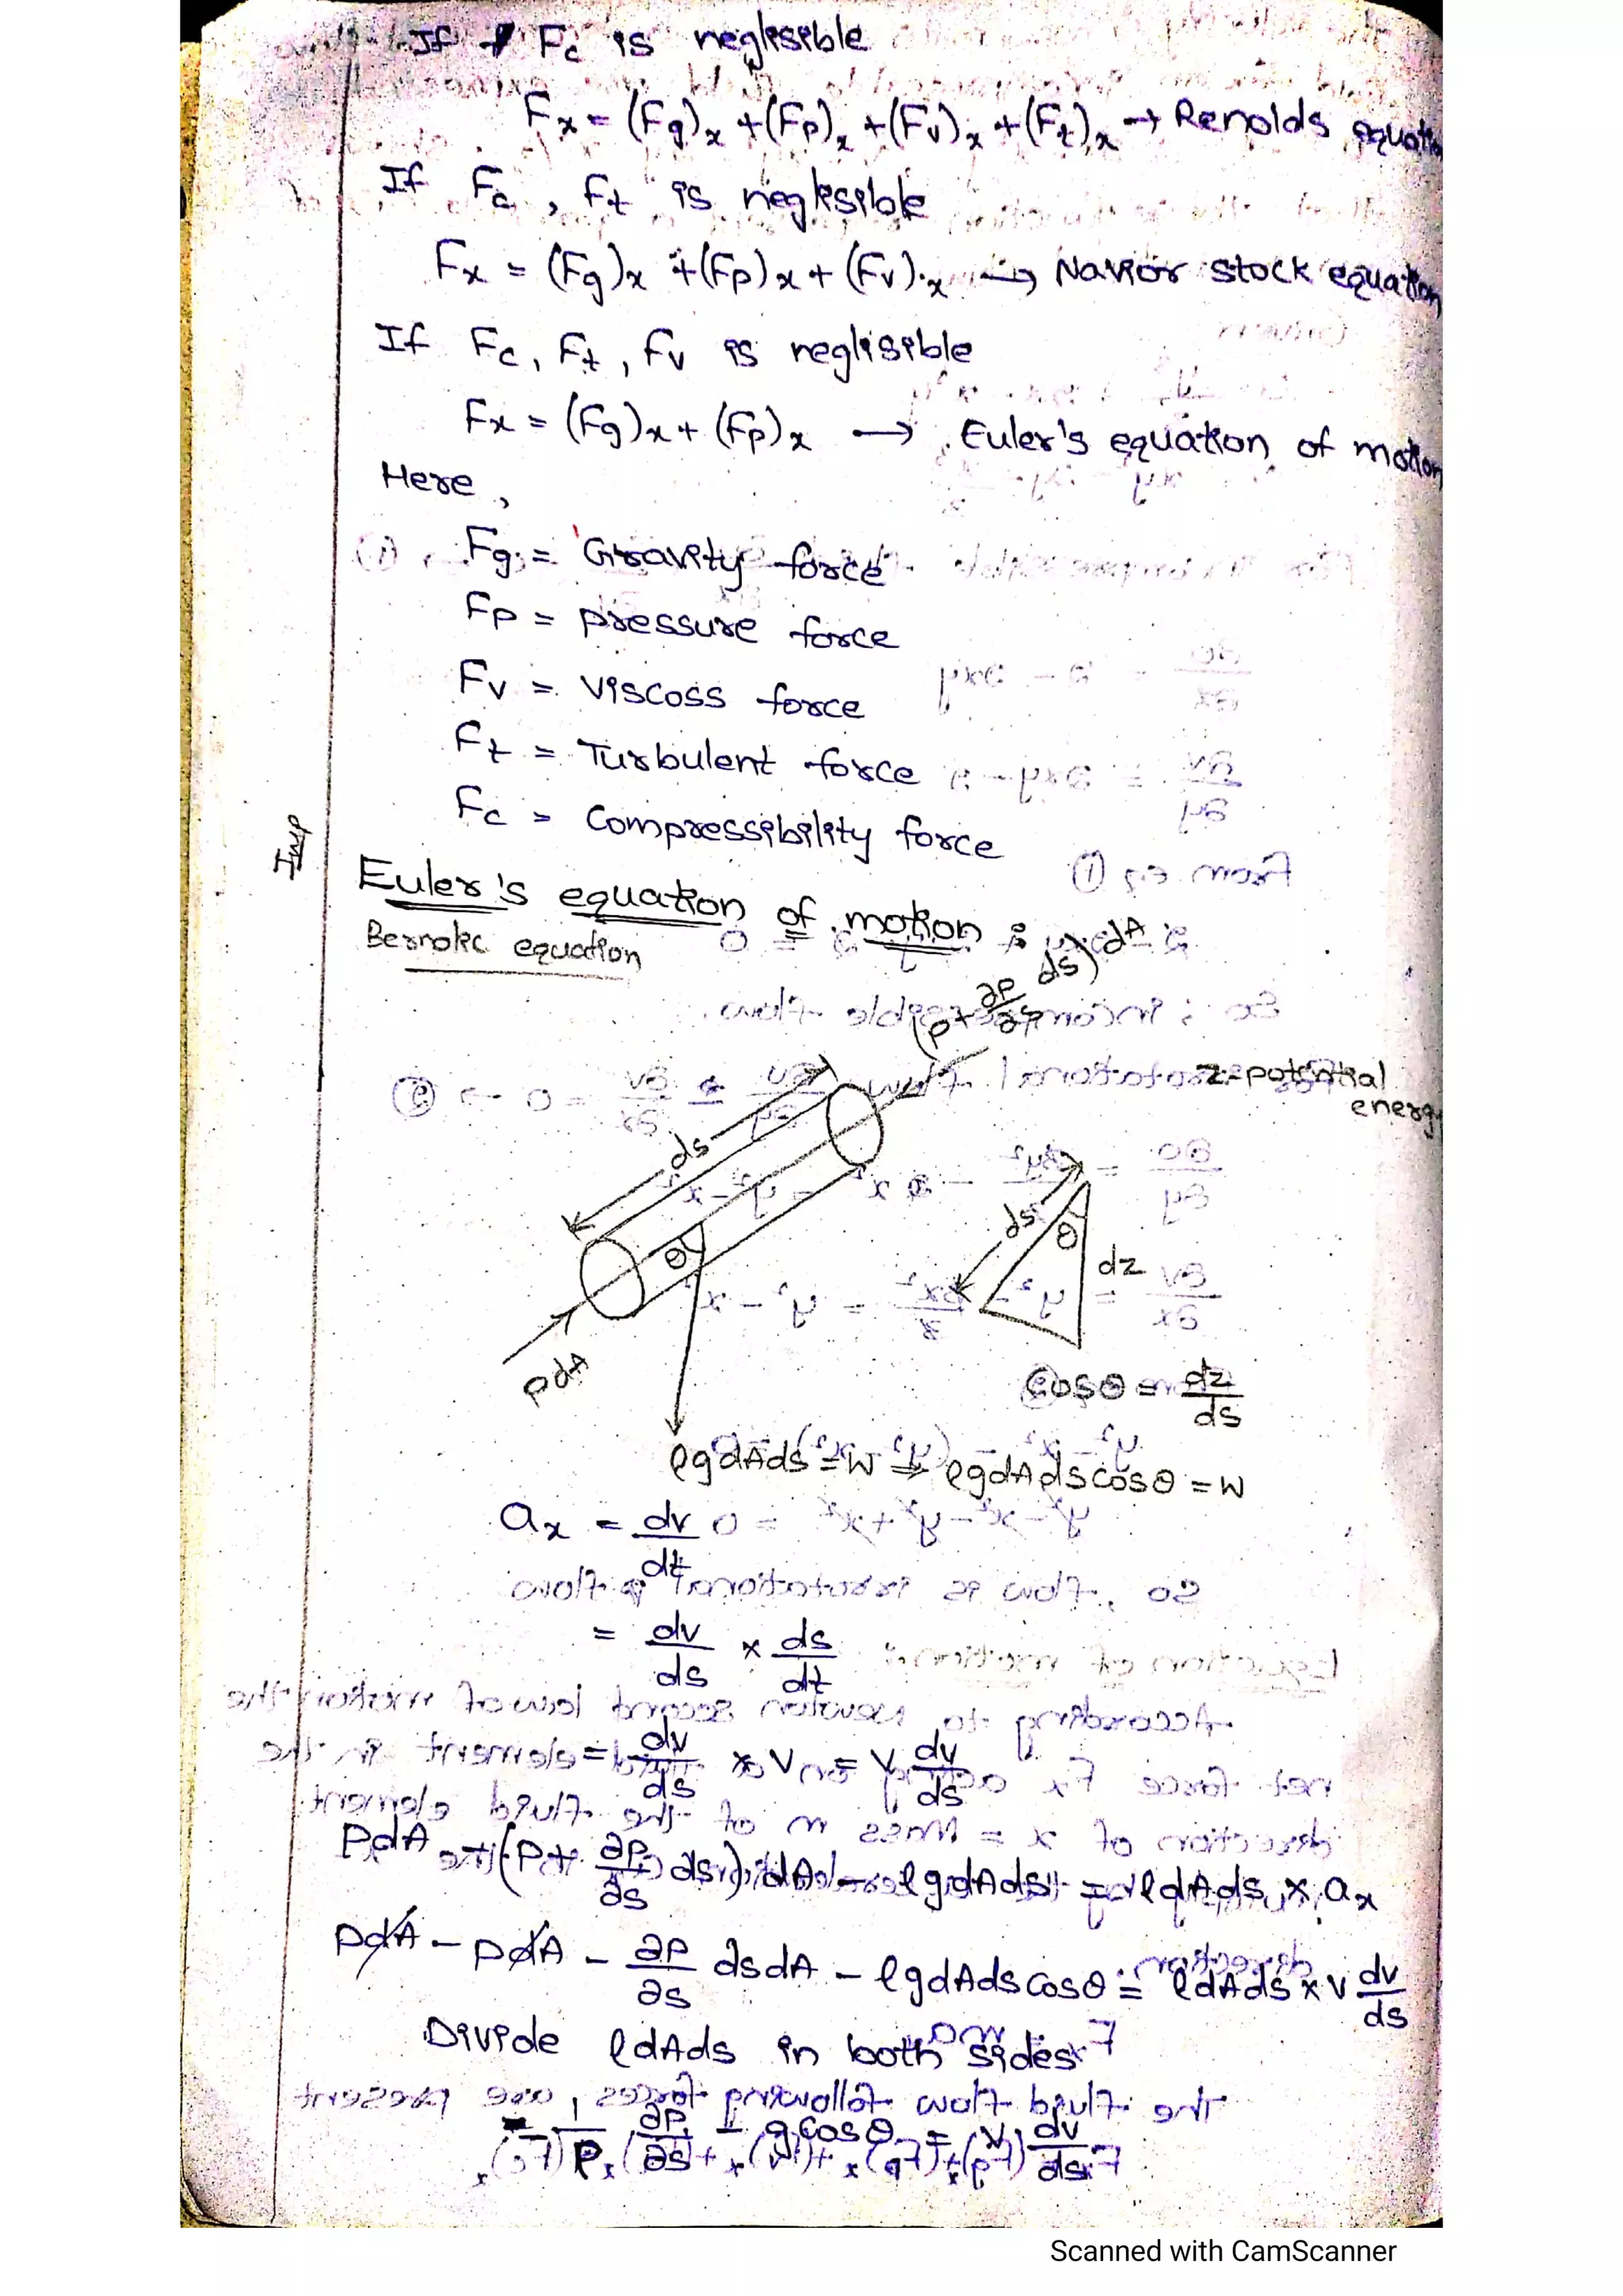 If Fc is neglisible
Fx = (Fg)x + (Fp)x + (Fv)x + (Ft)x → Renolds equation
If Fc, Ft is neglisible
Fx = (Fg)x + (Fp)x + (Fv)x → Navior stock equation
If Fc, Ft, Fv is neglisible
Fx = (Fg)x + (Fp)x → Euler's equation of motion
Here,
Fg = Gravity force
Fp = pressure force
Fv = viscoss force
Ft = Turbulent force
Fc = Compressibility force
Imp
Euler's equation of motion :
Bernolic equation
(P + ∂P/∂s ds) dA
z-potential energy
ds
θ
PdA
ds
θ
dz
Cosθ = dz/ds
ρgdAds = W ⇒ ρgdAdscosθ = W
ax = dv/dt
= dv/ds × ds/dt
= dv/ds × v = v dv/ds
PdA - (P + ∂P/∂s ds) dA - ρgdAds = ρdAds × ax
PdA - PdA - ∂P/∂s ∂sdA - ρgdAdscosθ = ρdAds × v dv/ds
Divide ρdAds in both sides
- 1/ρ ∂P/∂s - gcosθ = v dv/ds
Scanned with CamScanner